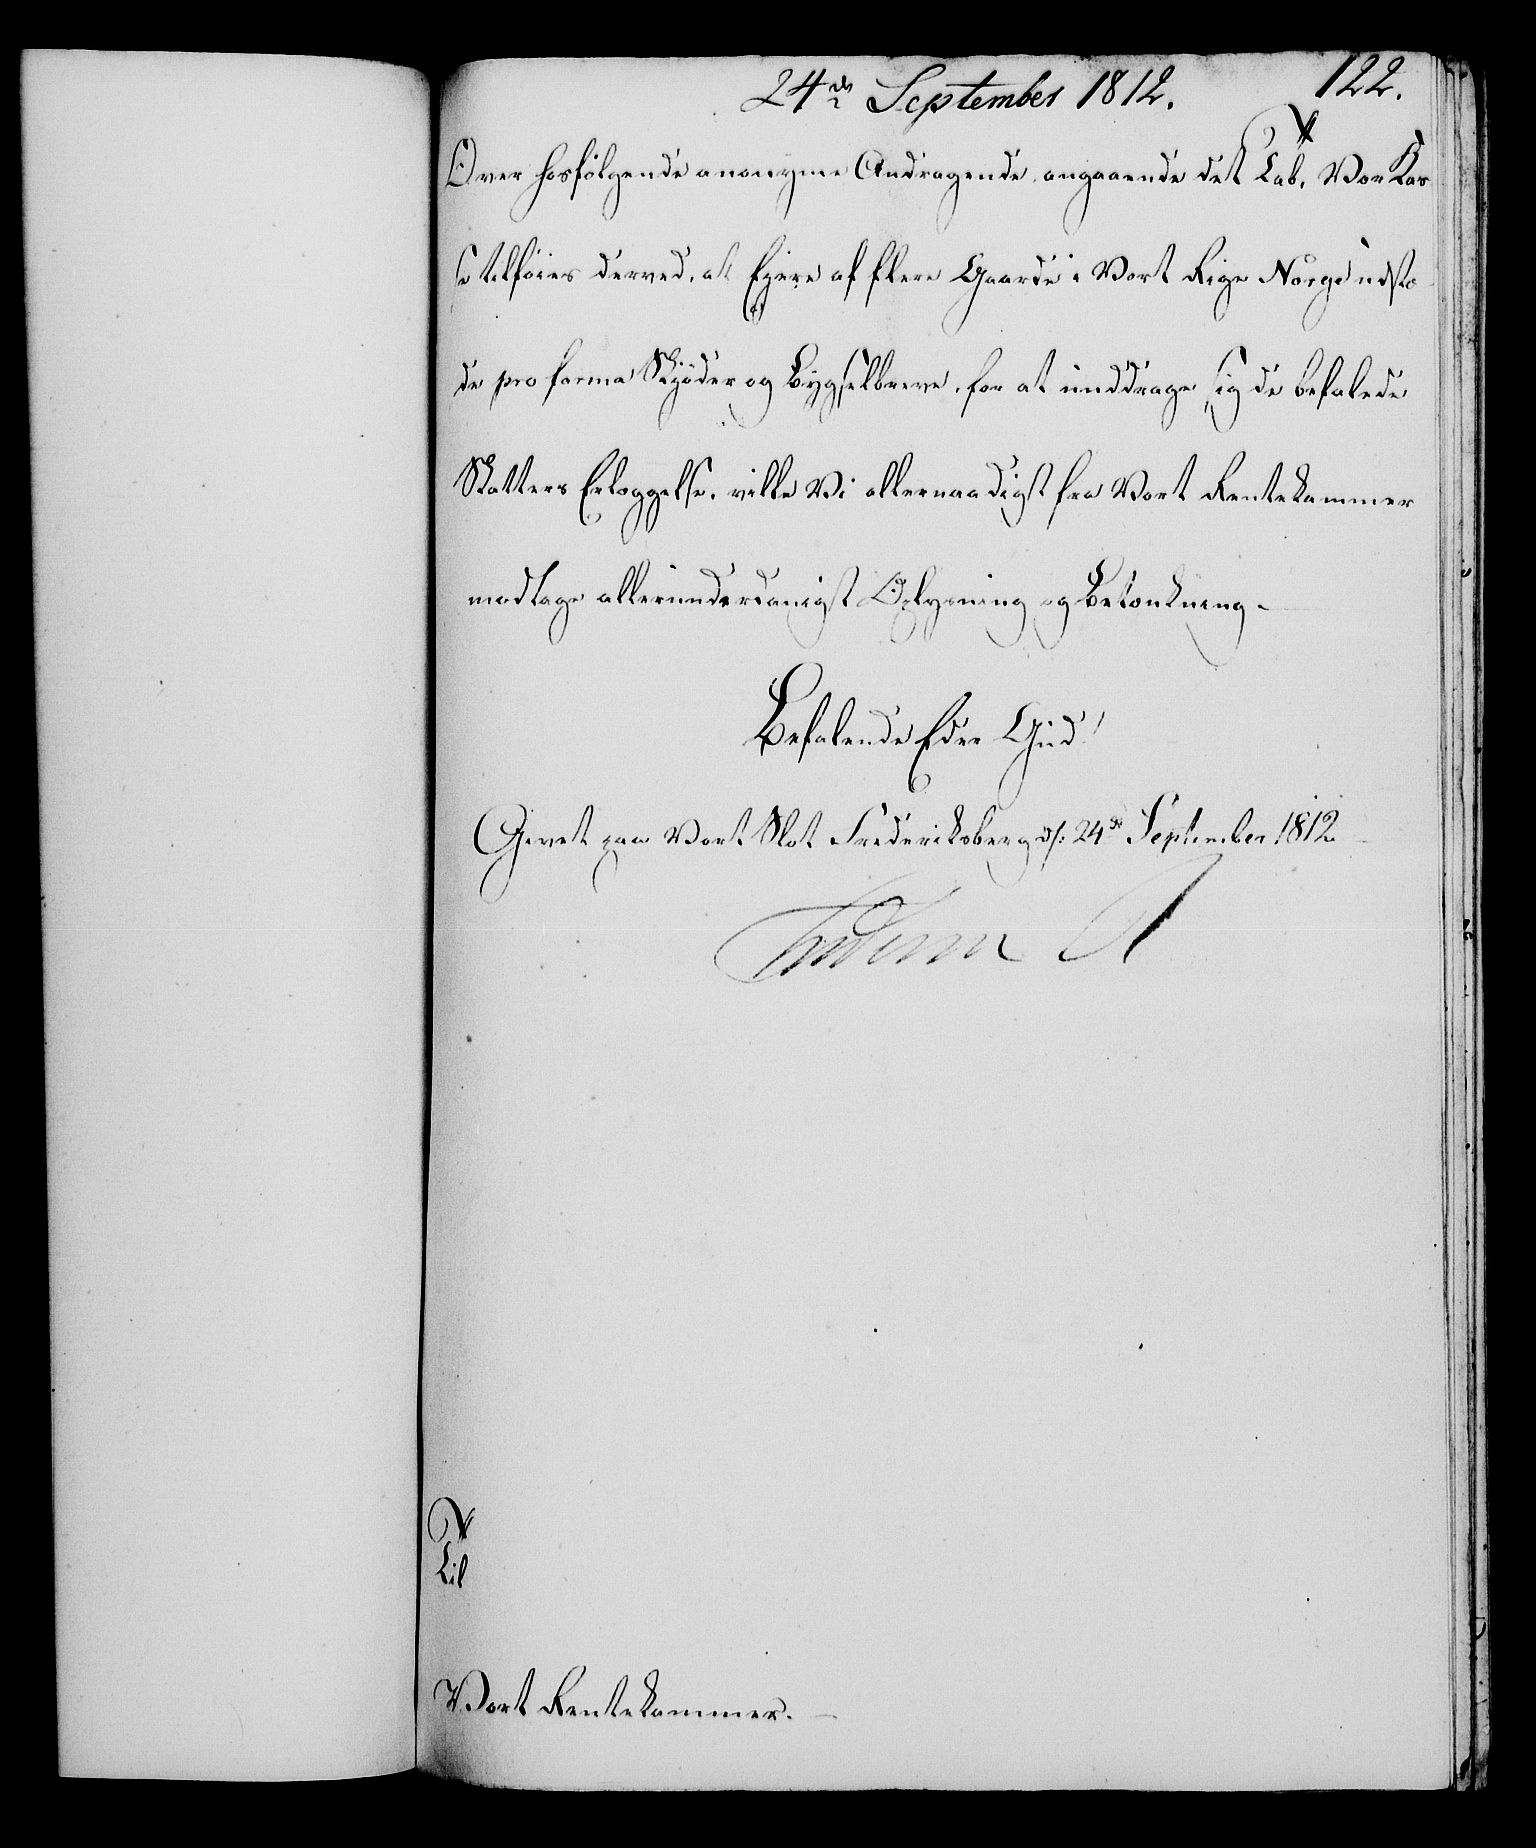 24de September 1812.
122.
Over hosfølgende anonyme Andragende angaaende det Tab, Vor Kas
se tilføies derved, at Ejere af flere Gaarde i Vort Rige Norge udstæ
de pro forma Skjøder og Bygselbreve, for at unddrage sig de befalede
Skatters Erlæggelse, ville Vi allernaadigst fra Vort Rentekammer
modtage allerunderdanigst Oplysning og Betænkning.
Befalende Eder Gud!
Givet paa Vort Slot Frederiksberg d: 24de September 1812
Frederik R
Til
Vort Rentekammer.